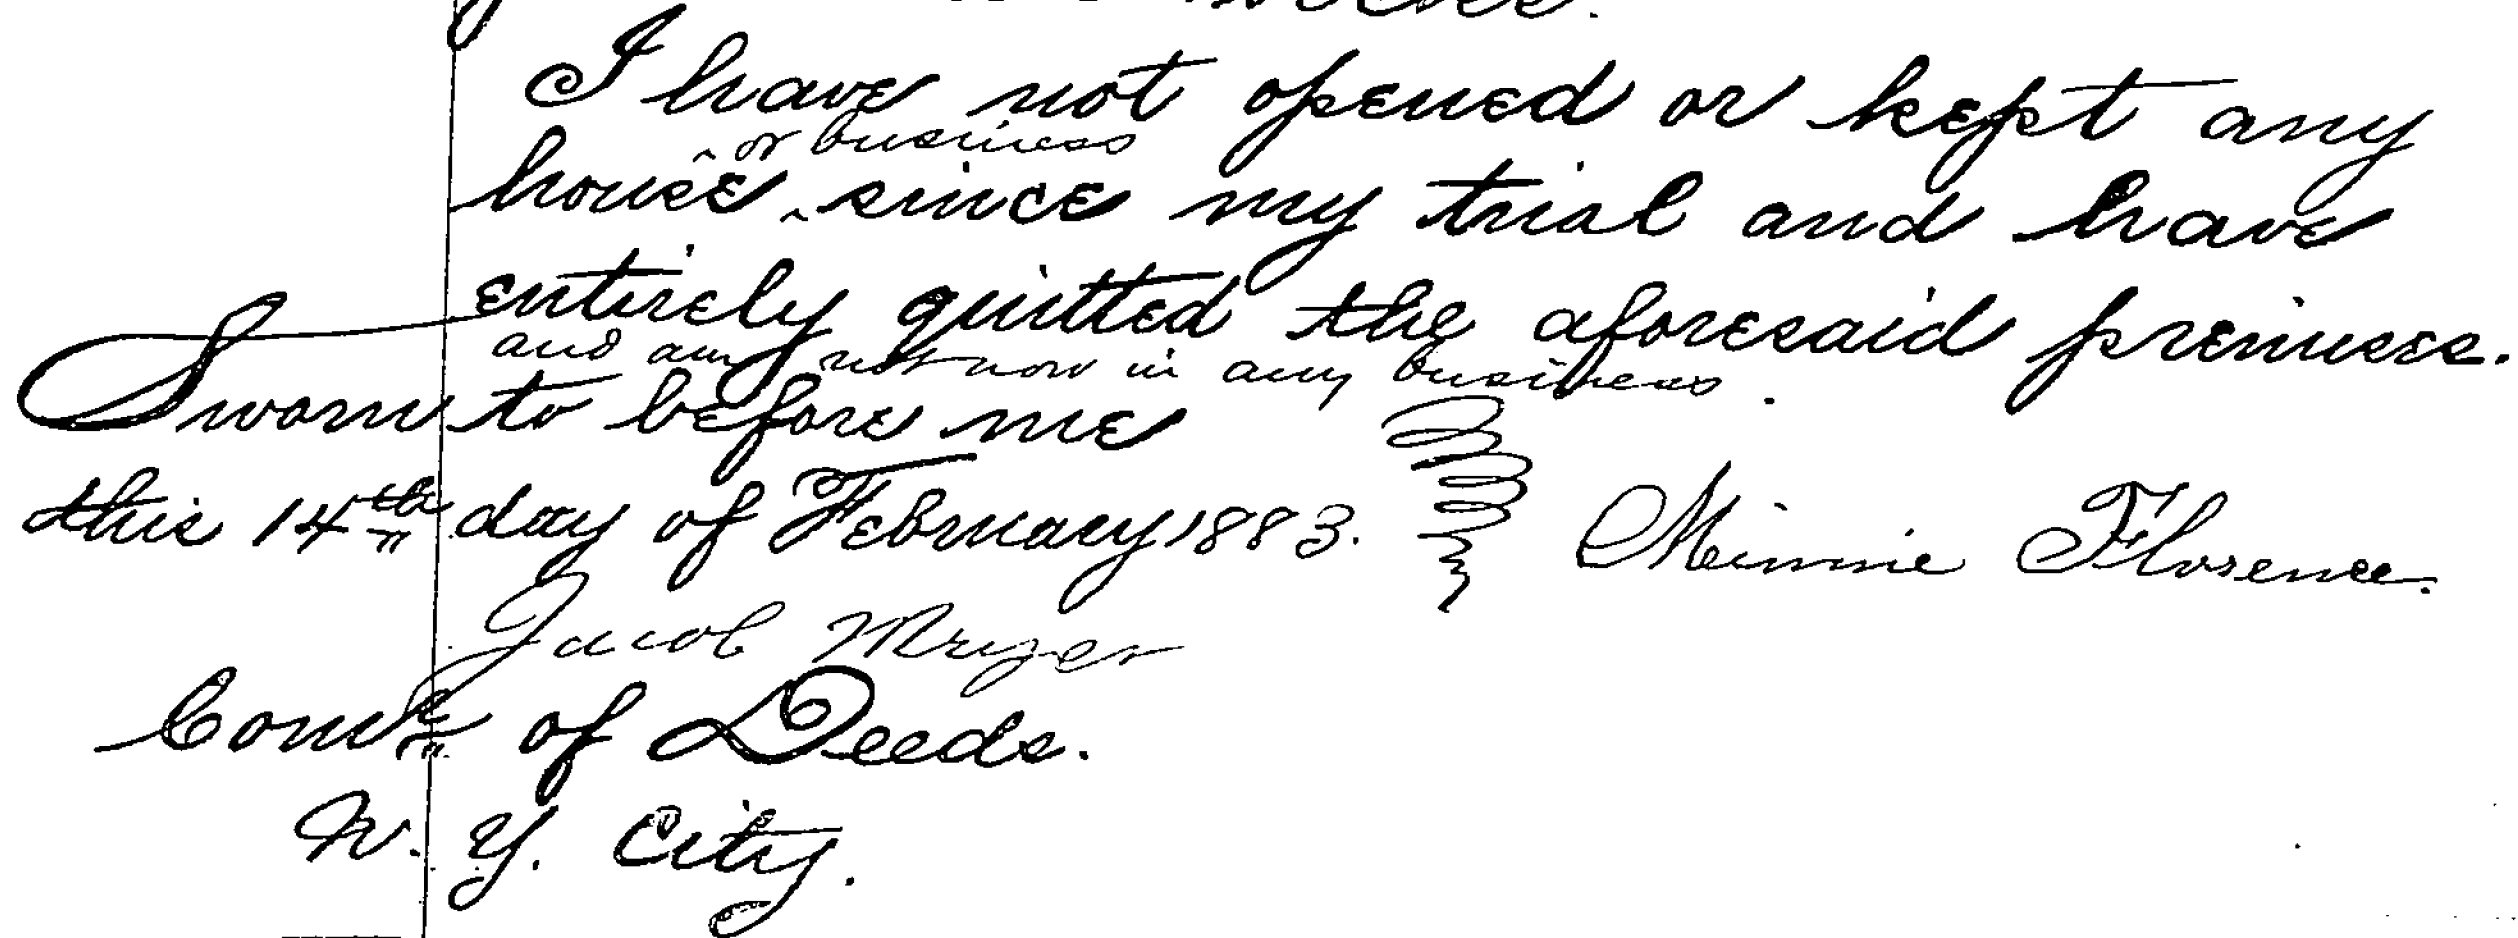 I have not opened or kept any
or business
house since my trial and have
entirely quitted the aforesaid premises.
and am not now in any business.
Sworn to before me
this 14th day of February 1883.
Minnie Florence.
Jacob
Comr of Deeds.
N. Y. City.